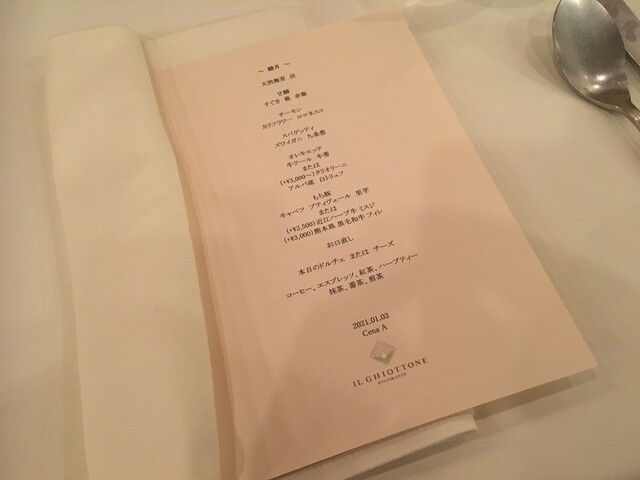 ～ 睦月 ～
天然舞茸
甘鯛
すぐき 蕪
サーモン
カリフラワー ロマネスコ
スパゲッティ
ズワイガニ 九条葱
オレキエッテ
牛テール 牛蒡
または
(+¥3,000～)タリオリーニ
アルバ産 白トリュフ
もち豚
キャベツ プティヴェール 里芋
または
(+¥2,500)近江ハーブ牛 ミスジ
(+¥3,000)熊本県 黒毛和牛 フィレ
お口直し
本日のドルチェ または チーズ
コーヒー、エスプレッソ、紅茶、ハーブティー
抹茶、番茶、煎茶
2021.01.03
Cena A
IL GHIOTTONE
RISTORANTE